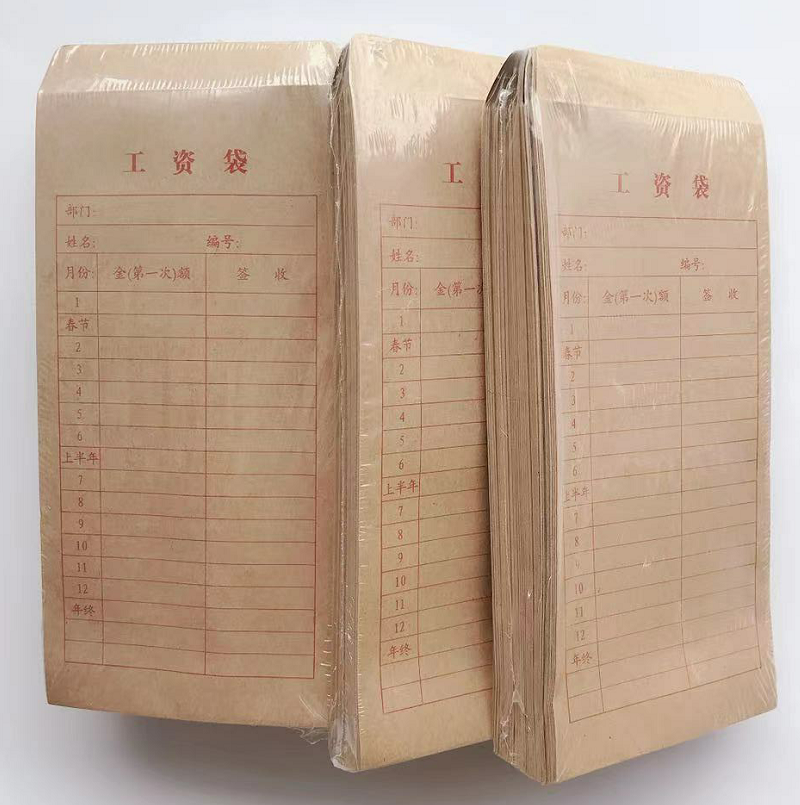 工资袋
部门:
姓名: 编号:
月份: 金(第一次)额 签收
1
春节
2
3
4
5
6
上半年
7
8
9
10
11
12
年终
工
部门:
姓名:
月份: 金(第一次
1
春节
2
3
4
5
6
上半年
7
8
9
10
11
12
年终
工资袋
部门:
姓名: 编号:
月份: 金(第一次)额 签收
1
春节
2
3
4
5
6
上半年
7
8
9
10
11
12
年终